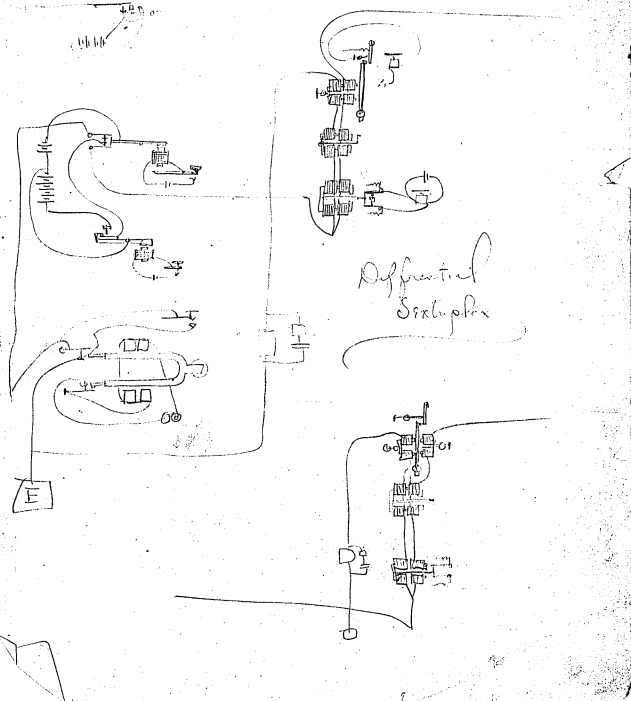 Differential
Sextuplex
E